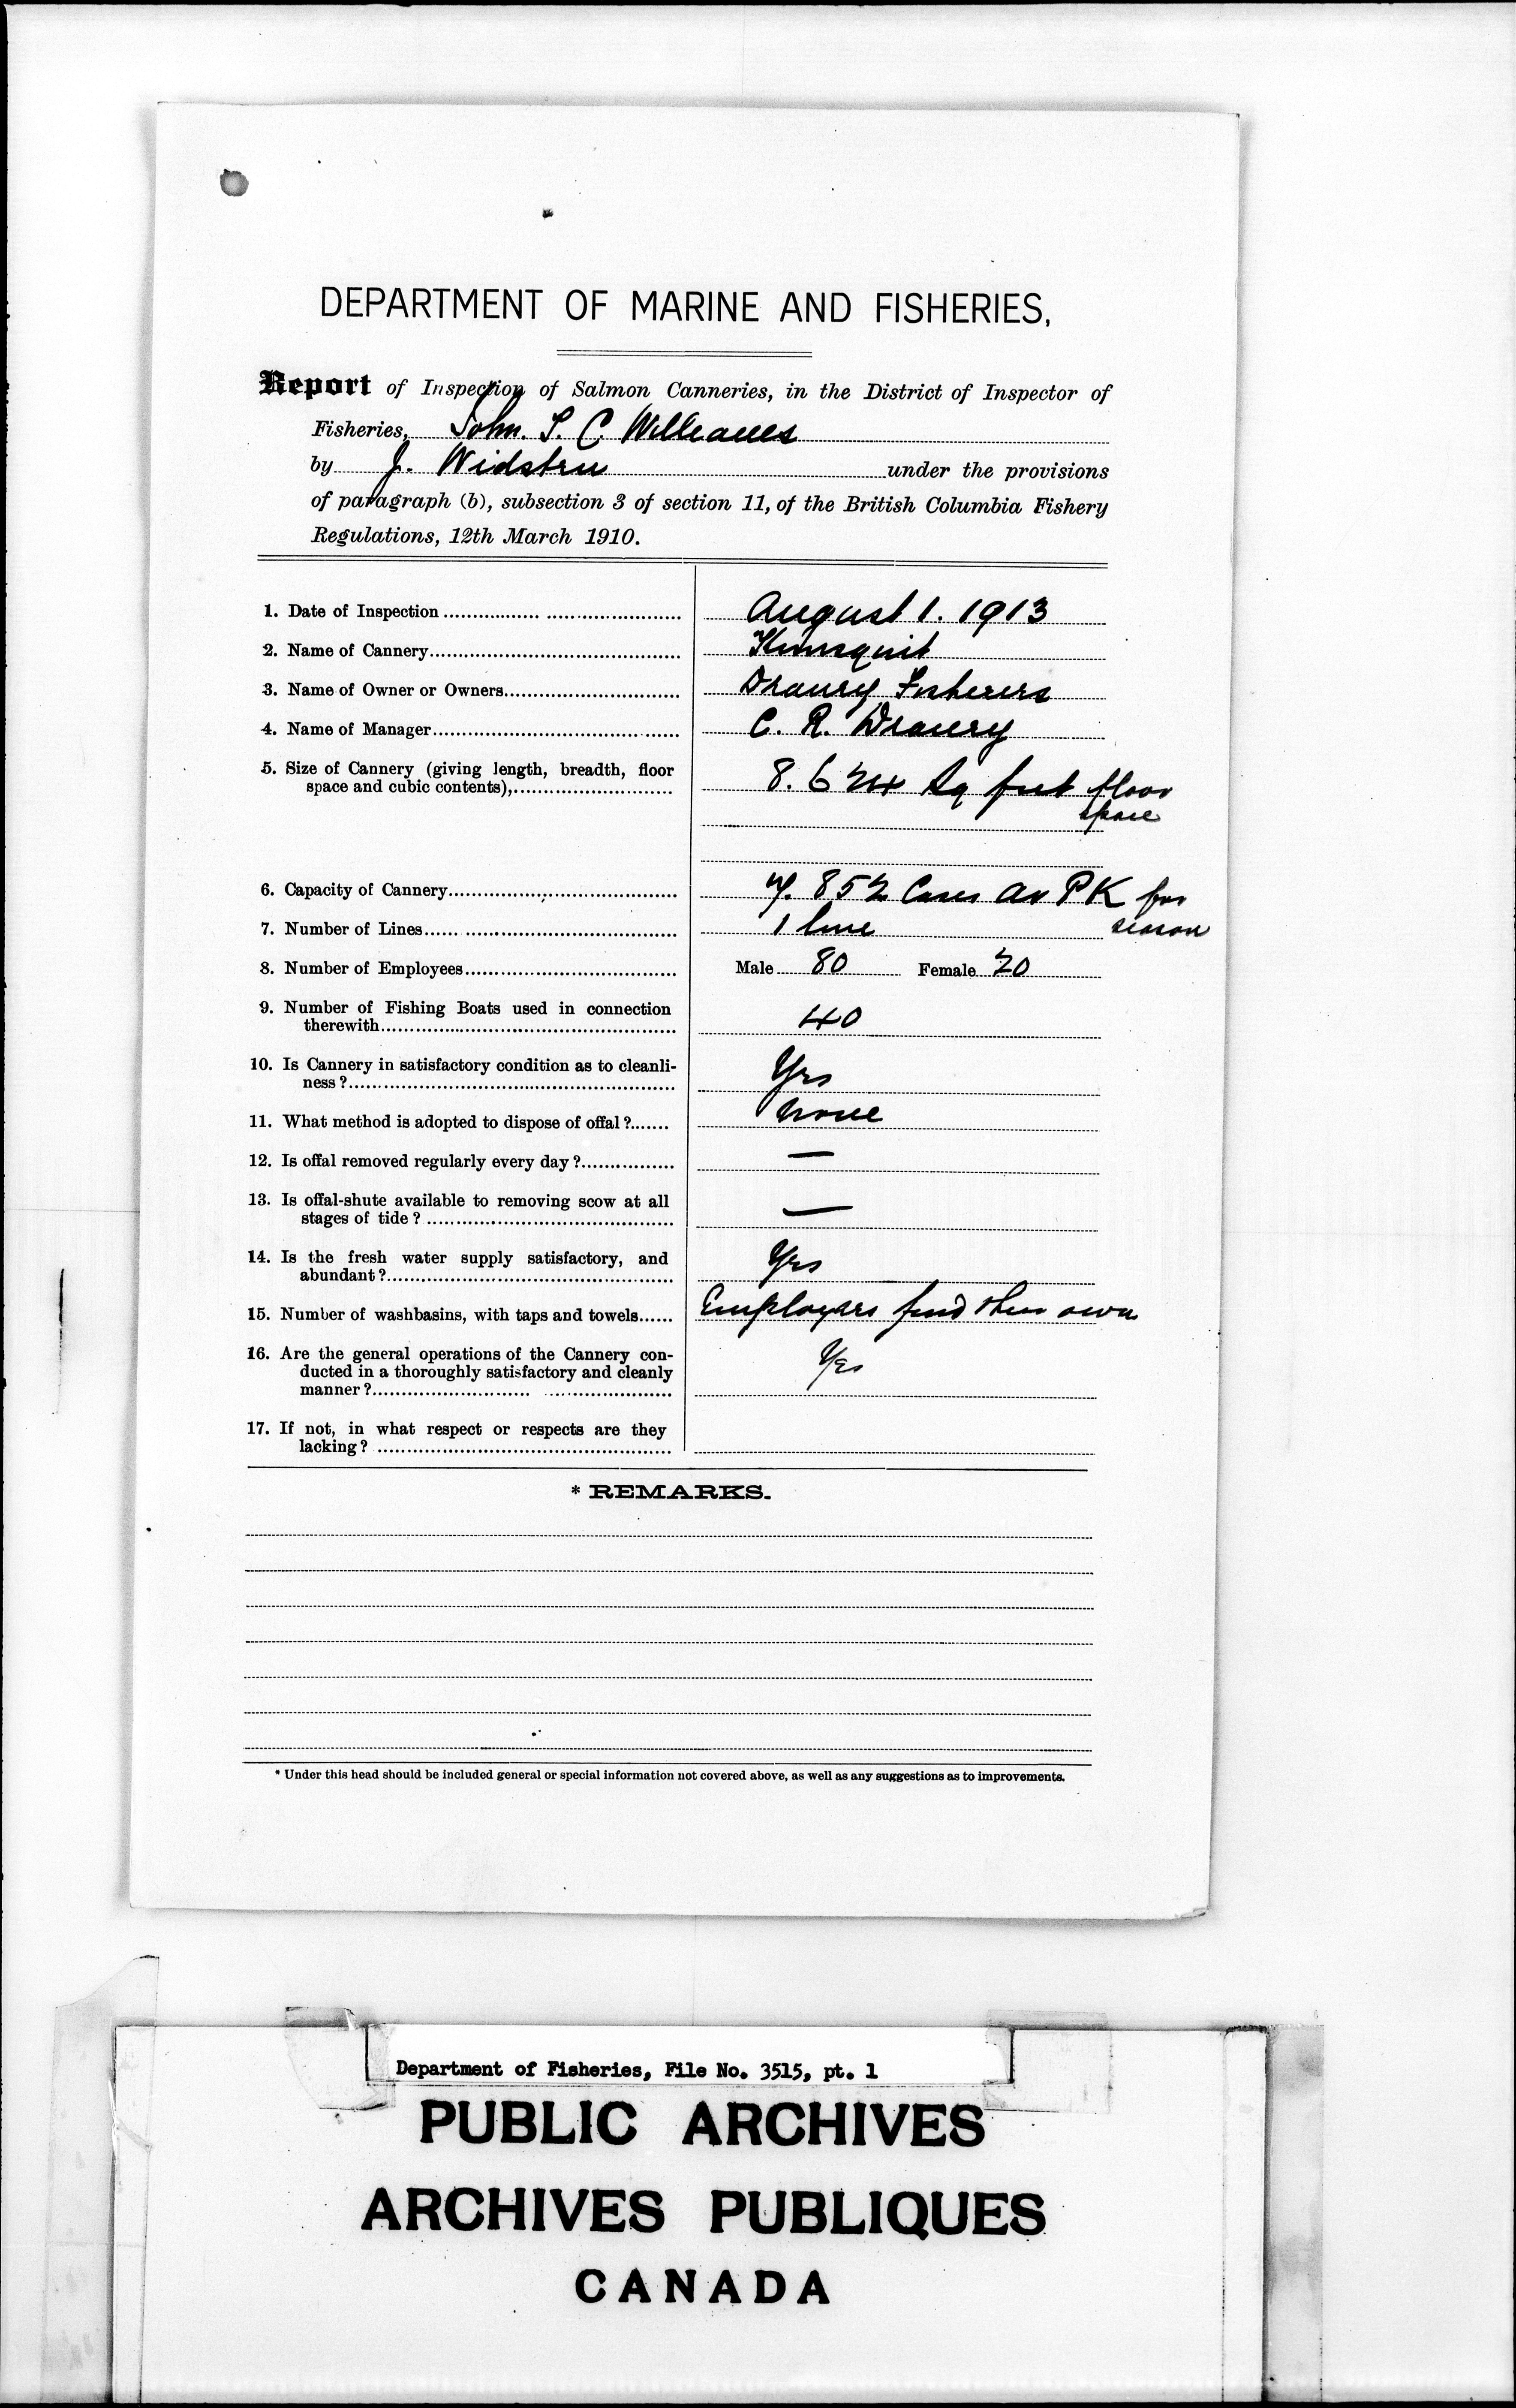 DEPARTMENT OF MARINE AND FISHERIES,
Report of Inspection of Salmon Canneries, in the District of Inspector of
Fisheries, John. T. C. Williams
by J. Widsten under the provisions
of paragraph (b), subsection 3 of section 11, of the British Columbia Fishery
Regulations, 12th March 1910.
1. Date of Inspection August 1. 1913
2. Name of Cannery Kimsquit
3. Name of Owner or Owners Draney Fisheries
4. Name of Manager C. R. Draney
5. Size of Cannery (giving length, breadth, floor
space and cubic contents), 8. 624 Sq feet floor
space
6. Capacity of Cannery 852 Cases av PK for
season
7. Number of Lines 1 line
8. Number of Employees Male 80 Female 20
9. Number of Fishing Boats used in connection
therewith 40
10. Is Cannery in satisfactory condition as to cleanli-
ness? Yes
11. What method is adopted to dispose of offal? None
12. Is offal removed regularly every day? —
13. Is offal-shute available to removing scow at all
stages of tide? —
14. Is the fresh water supply satisfactory, and
abundant? Yes
15. Number of washbasins, with taps and towels Employees find their own
16. Are the general operations of the Cannery con-
ducted in a thoroughly satisfactory and cleanly
manner? Yes
17. If not, in what respect or respects are they
lacking?
* REMARKS.
* Under this head should be included general or special information not covered above, as well as any suggestions as to improvements.
Department of Fisheries, File No. 3515, pt. 1
PUBLIC ARCHIVES
ARCHIVES PUBLIQUES
CANADA